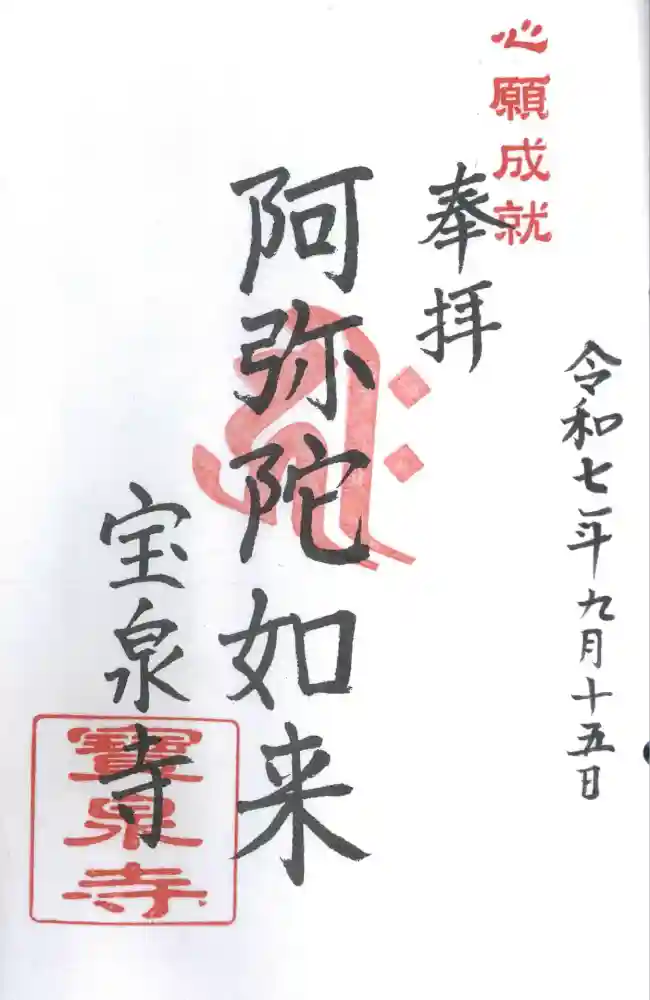 心願成就
令和七年九月十五日
奉拝
阿弥陀如来
宝泉寺
寶泉寺